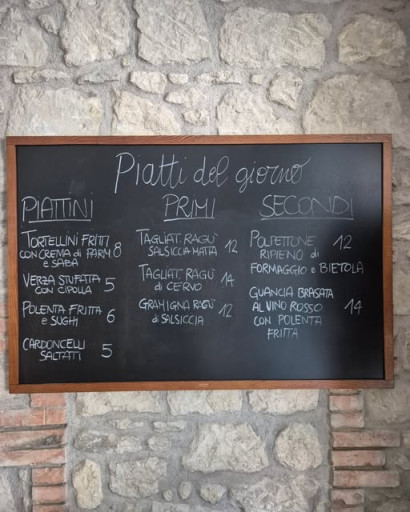 Piatti del giorno
PIATTINI
TORTELLINI FRITTI
CON CREMA di PARM 8
e SABA
VERZA STUFATA
CON CIPOLLA 5
POLENTA FRITTA
e SUGHI 6
CARDONCELLI
SALTATI 5
PRIMI
TAGLIAT. RAGU'
SALSICCIA MATTA 12
TAGLIAT. RAGU'
di CERVO 14
GRAMIGNA RAGU'
di SALSICCIA 12
SECONDI
POLPETTONE 12
RIPIENO di
FORMAGGIO e BIETOLA
GUANCIA BRASATA
AL VINO ROSSO 14
CON POLENTA
FRITTA